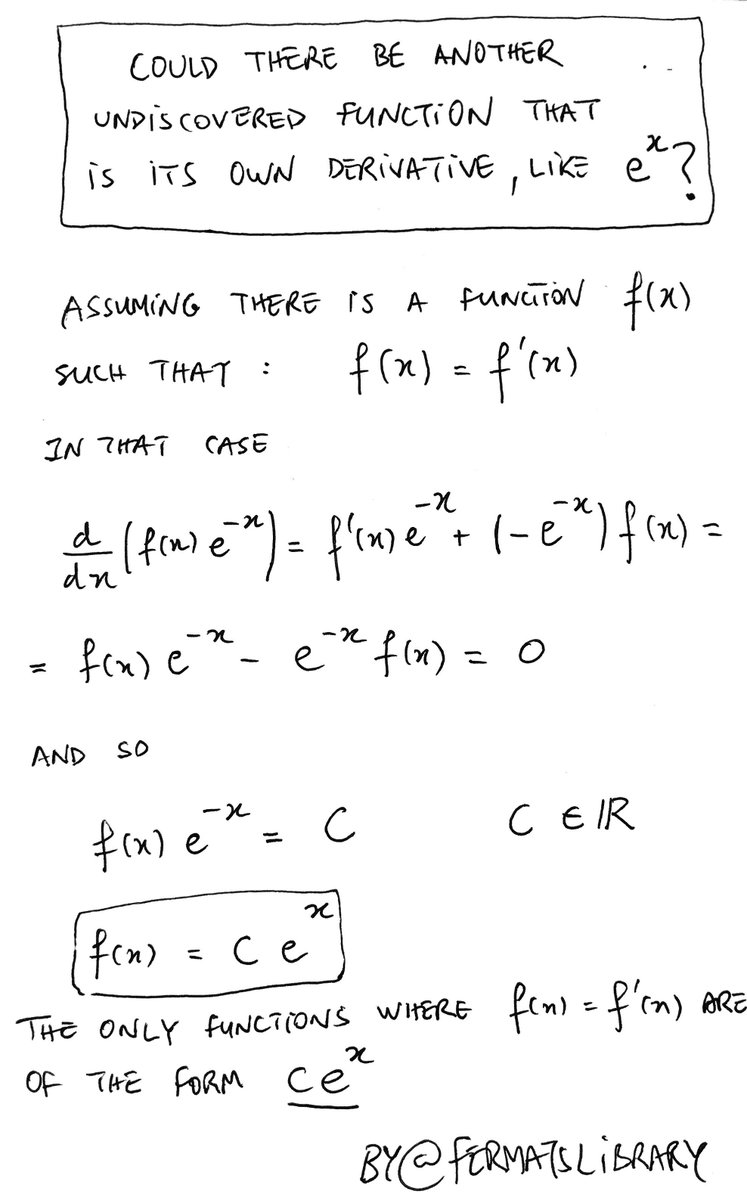 COULD THERE BE ANOTHER
UNDISCOVERED FUNCTION THAT
IS ITS OWN DERIVATIVE, LIKE e^x?
ASSUMING THERE IS A FUNCTION f(x)
SUCH THAT : f(x) = f'(x)
IN THAT CASE
d/dx (f(x) e^-x) = f'(x) e^-x + (-e^-x) f(x) =
= f(x) e^-x - e^-x f(x) = 0
AND SO
f(x) e^-x = C C ∈ ℝ
f(x) = C e^x
THE ONLY FUNCTIONS WHERE f(x) = f'(x) ARE
OF THE FORM Ce^x
BY @FERMATSLIBRARY